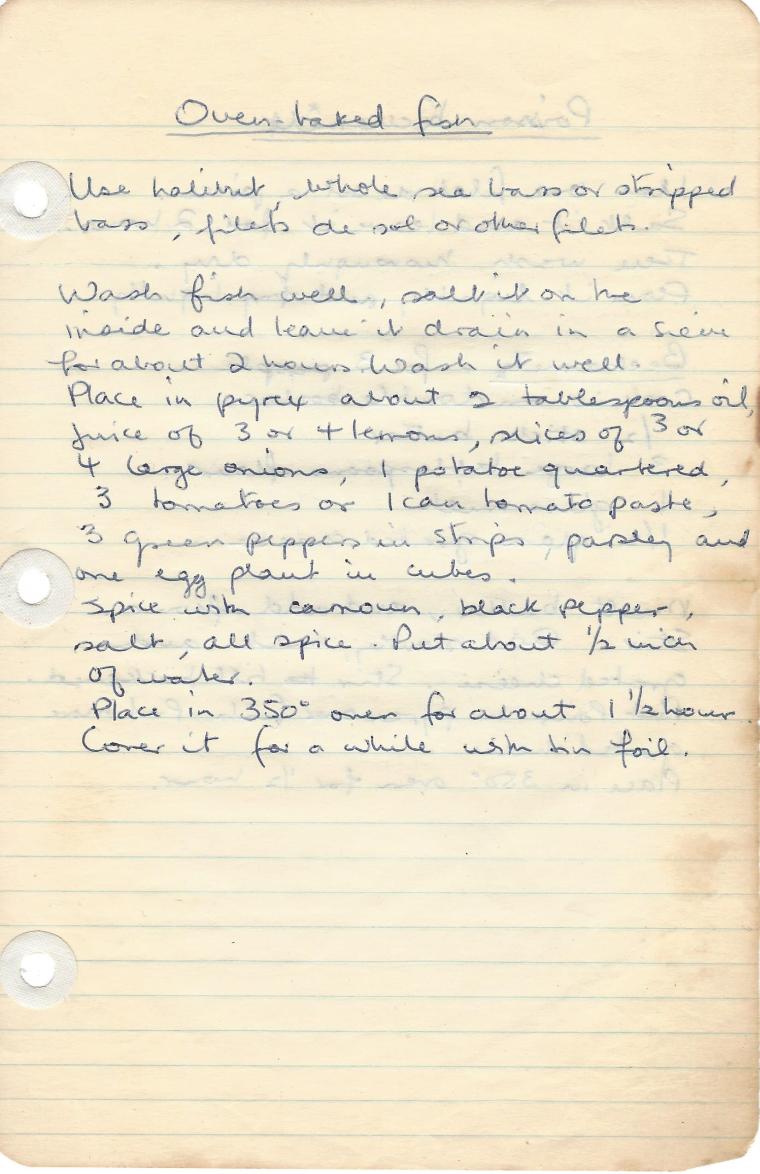 Oven baked fish
Use halibut, whole sea bass or stripped
bass, filets de sol or other filets.
Wash fish well, salt it on the
inside and leave it drain in a sieve
for about 2 hours. Wash it well.
Place in pyrex about 2 tablespoons oil,
juice of 3 or 4 lemons, slices of 3 or
4 large onions, 1 potatoe quartered,
3 tomatoes or 1 can tomato paste,
3 green peppers in strips, parsley and
one egg plant in cubes.
Spice with camoun, black pepper,
salt, all spice. Put about 1/2 inch
of water.
Place in 350° oven for about 1 1/2 hour.
Cover it for a while with tin foil.